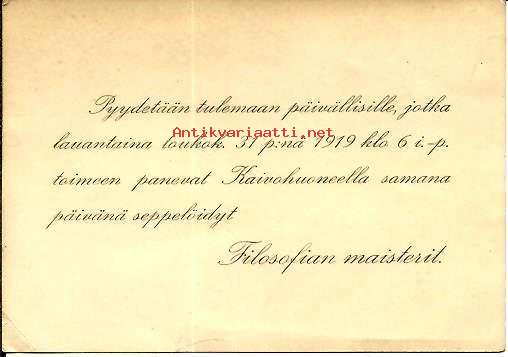 Pyydetään tulemaan päivällisille, jotka
Antikvariaatti.net
lauantaina toukok. 31 p:nä 1919 klo 6 i.-p.
toimeen panevat Kaivohuoneella samana
päivänä seppelöidyt
Filosofian maisterit.